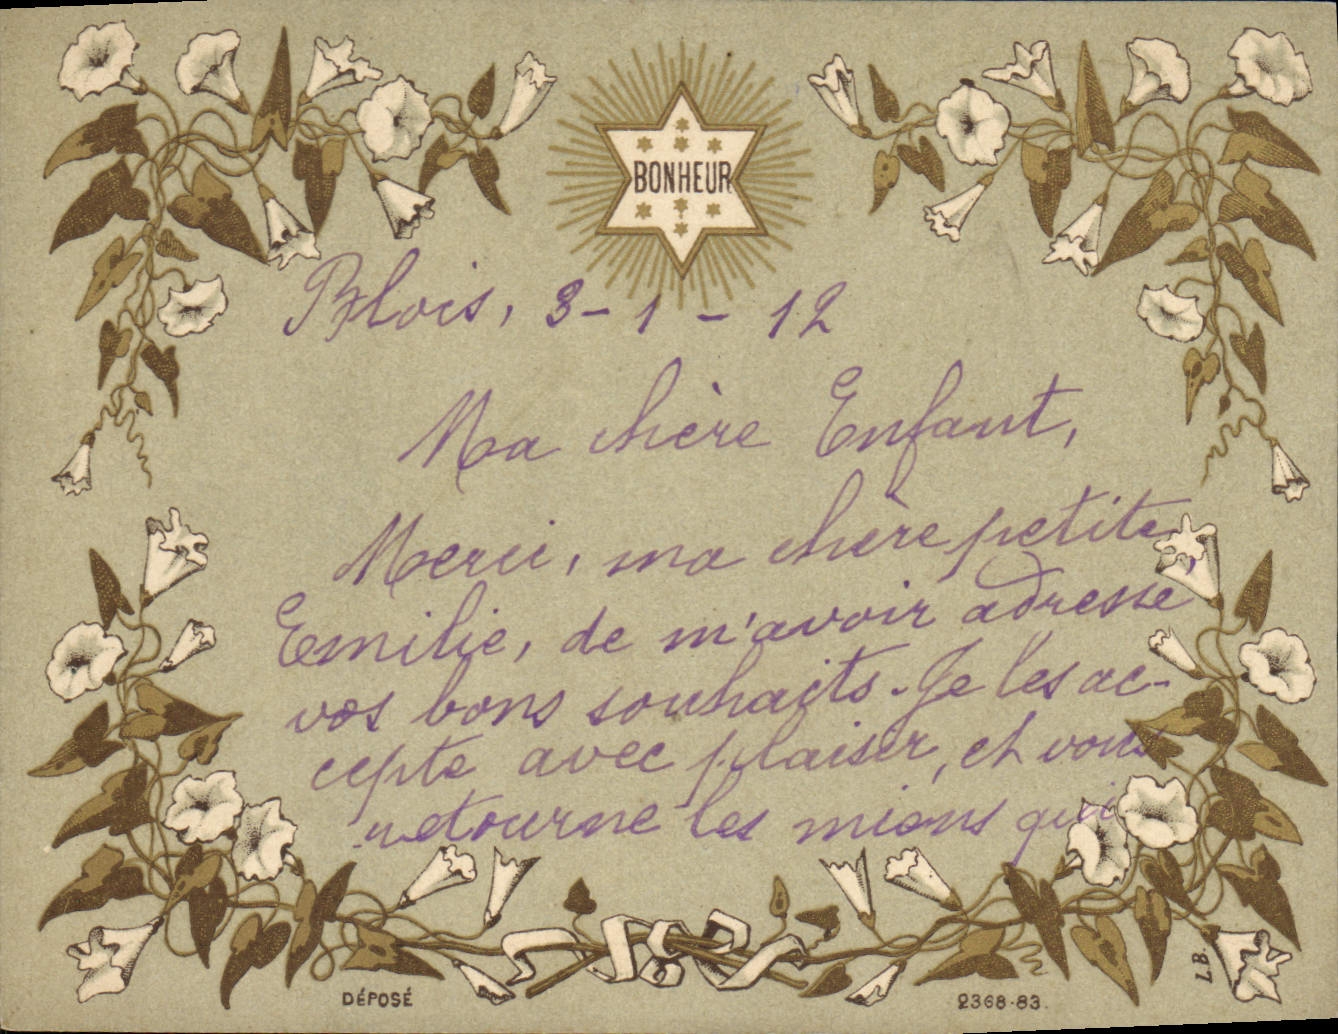 BONHEUR
Blois, 3-1-12
Ma chère Enfant,
Merci, ma chère petite
Emilie, de m'avoir adresse
vos bons souhaits. Je les ac-
cepte avec plaisir, et vous
retourne les miens qui
DÉPOSÉ
2368-83.
L.B.